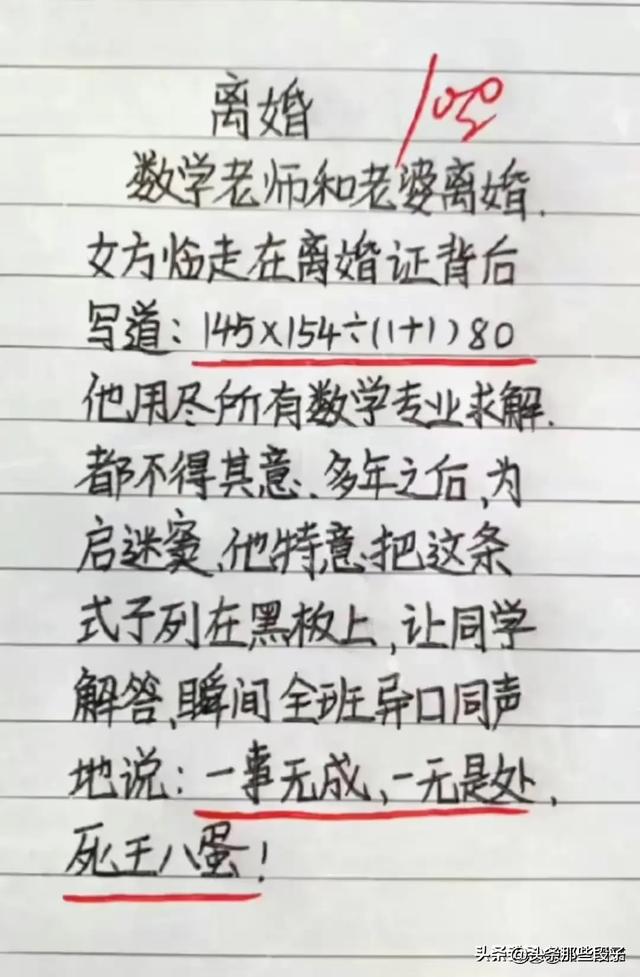 离婚 100
数学老师和老婆离婚.
女方临走在离婚证背后
写道：145×154÷(1+1)80
他用尽所有数学专业求解.
都不得其意、多年之后,为
启迷窦、他特意把这条
式子列在黑板上,让同学
解答、瞬间全班异口同声
地说：一事无成,一无是处,
死王八蛋！
头条@头条那些段子